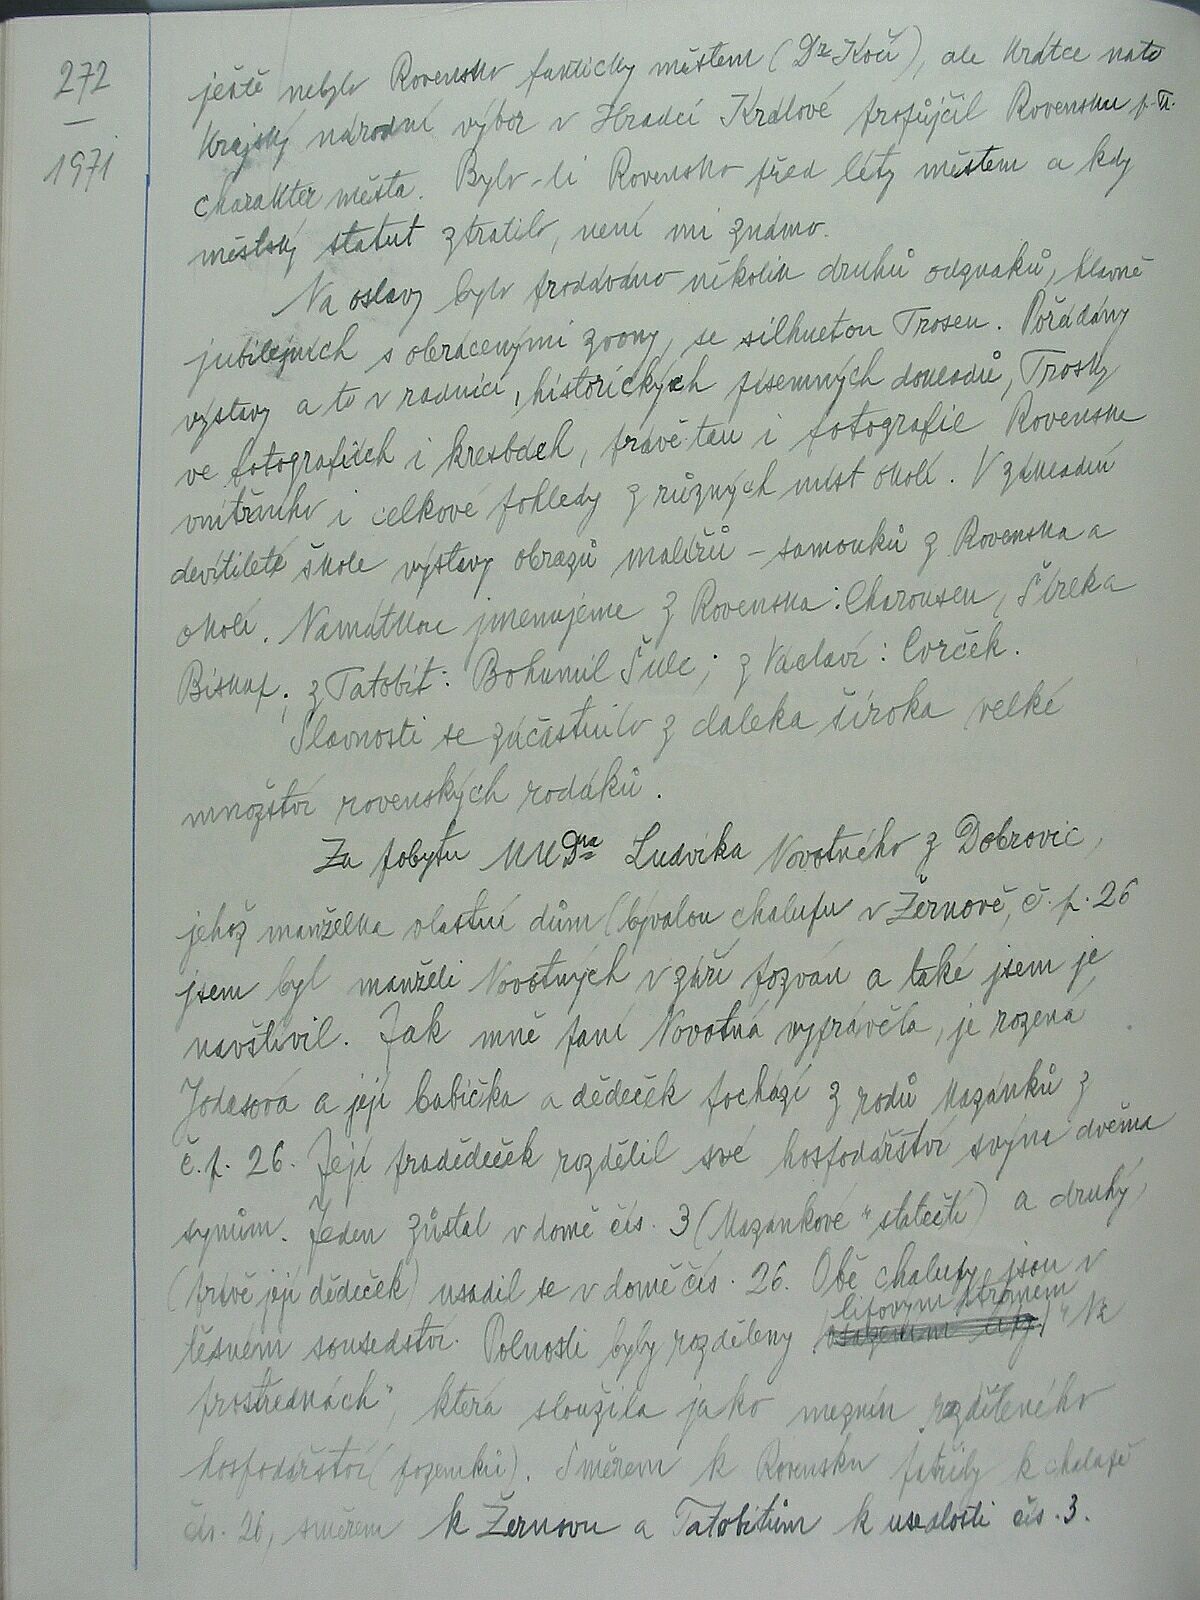 272
—
1971
ještě nebylo Rovensko fakticky městem (Dr Kočí), ale krátce nato
Krajský národní výbor v Hradci Králové propůjčil Rovensku p. Tr.
charakter města. Bylo-li Rovensko před léty městem a kdy
městský statut ztratilo, není mi známo.
Na oslavy bylo prodáváno několik druhů odznaků, hlavně
jubilejních s obrácenými zvony, se silhuetou Trosek. Pořádány
výstavy a to v radnici, historických písemných dokladů, Trosky
ve fotografiích i kresbách, právě tak i fotografie Rovenska
vnitřního i celkové pohledy z různých míst okolí. V základní
devítileté škole výstavy obrazů malířů - samouků z Rovenska a
okolí. Namátkou jmenujeme z Rovenska: Charousek, Šírek a
Biskup; z Tatobit: Bohumil Šulc; z Václaví: Cvrček.
Slavnosti se zúčastnilo z daleka široka velké
množství rovenských rodáků.
Za pobytu MUDra Ludvíka Novotného z Dobrovic,
jehož manželka vlastní dům (bývalou chalupu v Žernově, č. p. 26
jsem byl manželi Novotných v září pozván a také jsem je
navštívil. Jak mně paní Novotná vyprávěla, je rozená
Jodasová a její babička a dědeček pochází z rodů Mazánků z
č. p. 26. Její pradědeček rozdělil své hospodářství svým dvěma
synům. Jeden zůstal v domě čís. 3 (Mazánkové "statečtí) a druhý
(právě její dědeček) usadil se v domě čís. 26. Obě chalupy jsou v
lipovým stromem
těsném sousedství. Polnosti byly rozděleny "Na
prostředkách", která sloužila jako mezník rozděleného
hospodářství (pozemků). Směrem k Rovensku patřily k chalupě
čís. 26, směrem k Žernovu a Tatobitům k usedlosti čís. 3.